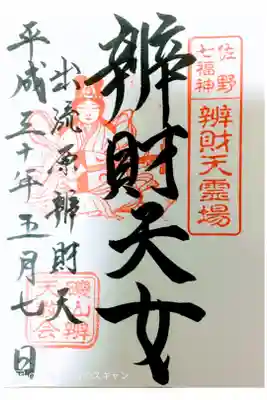 佐野
七福神
辨財天霊場
辨財天女
出流原辨財天
平成三十年五月七日